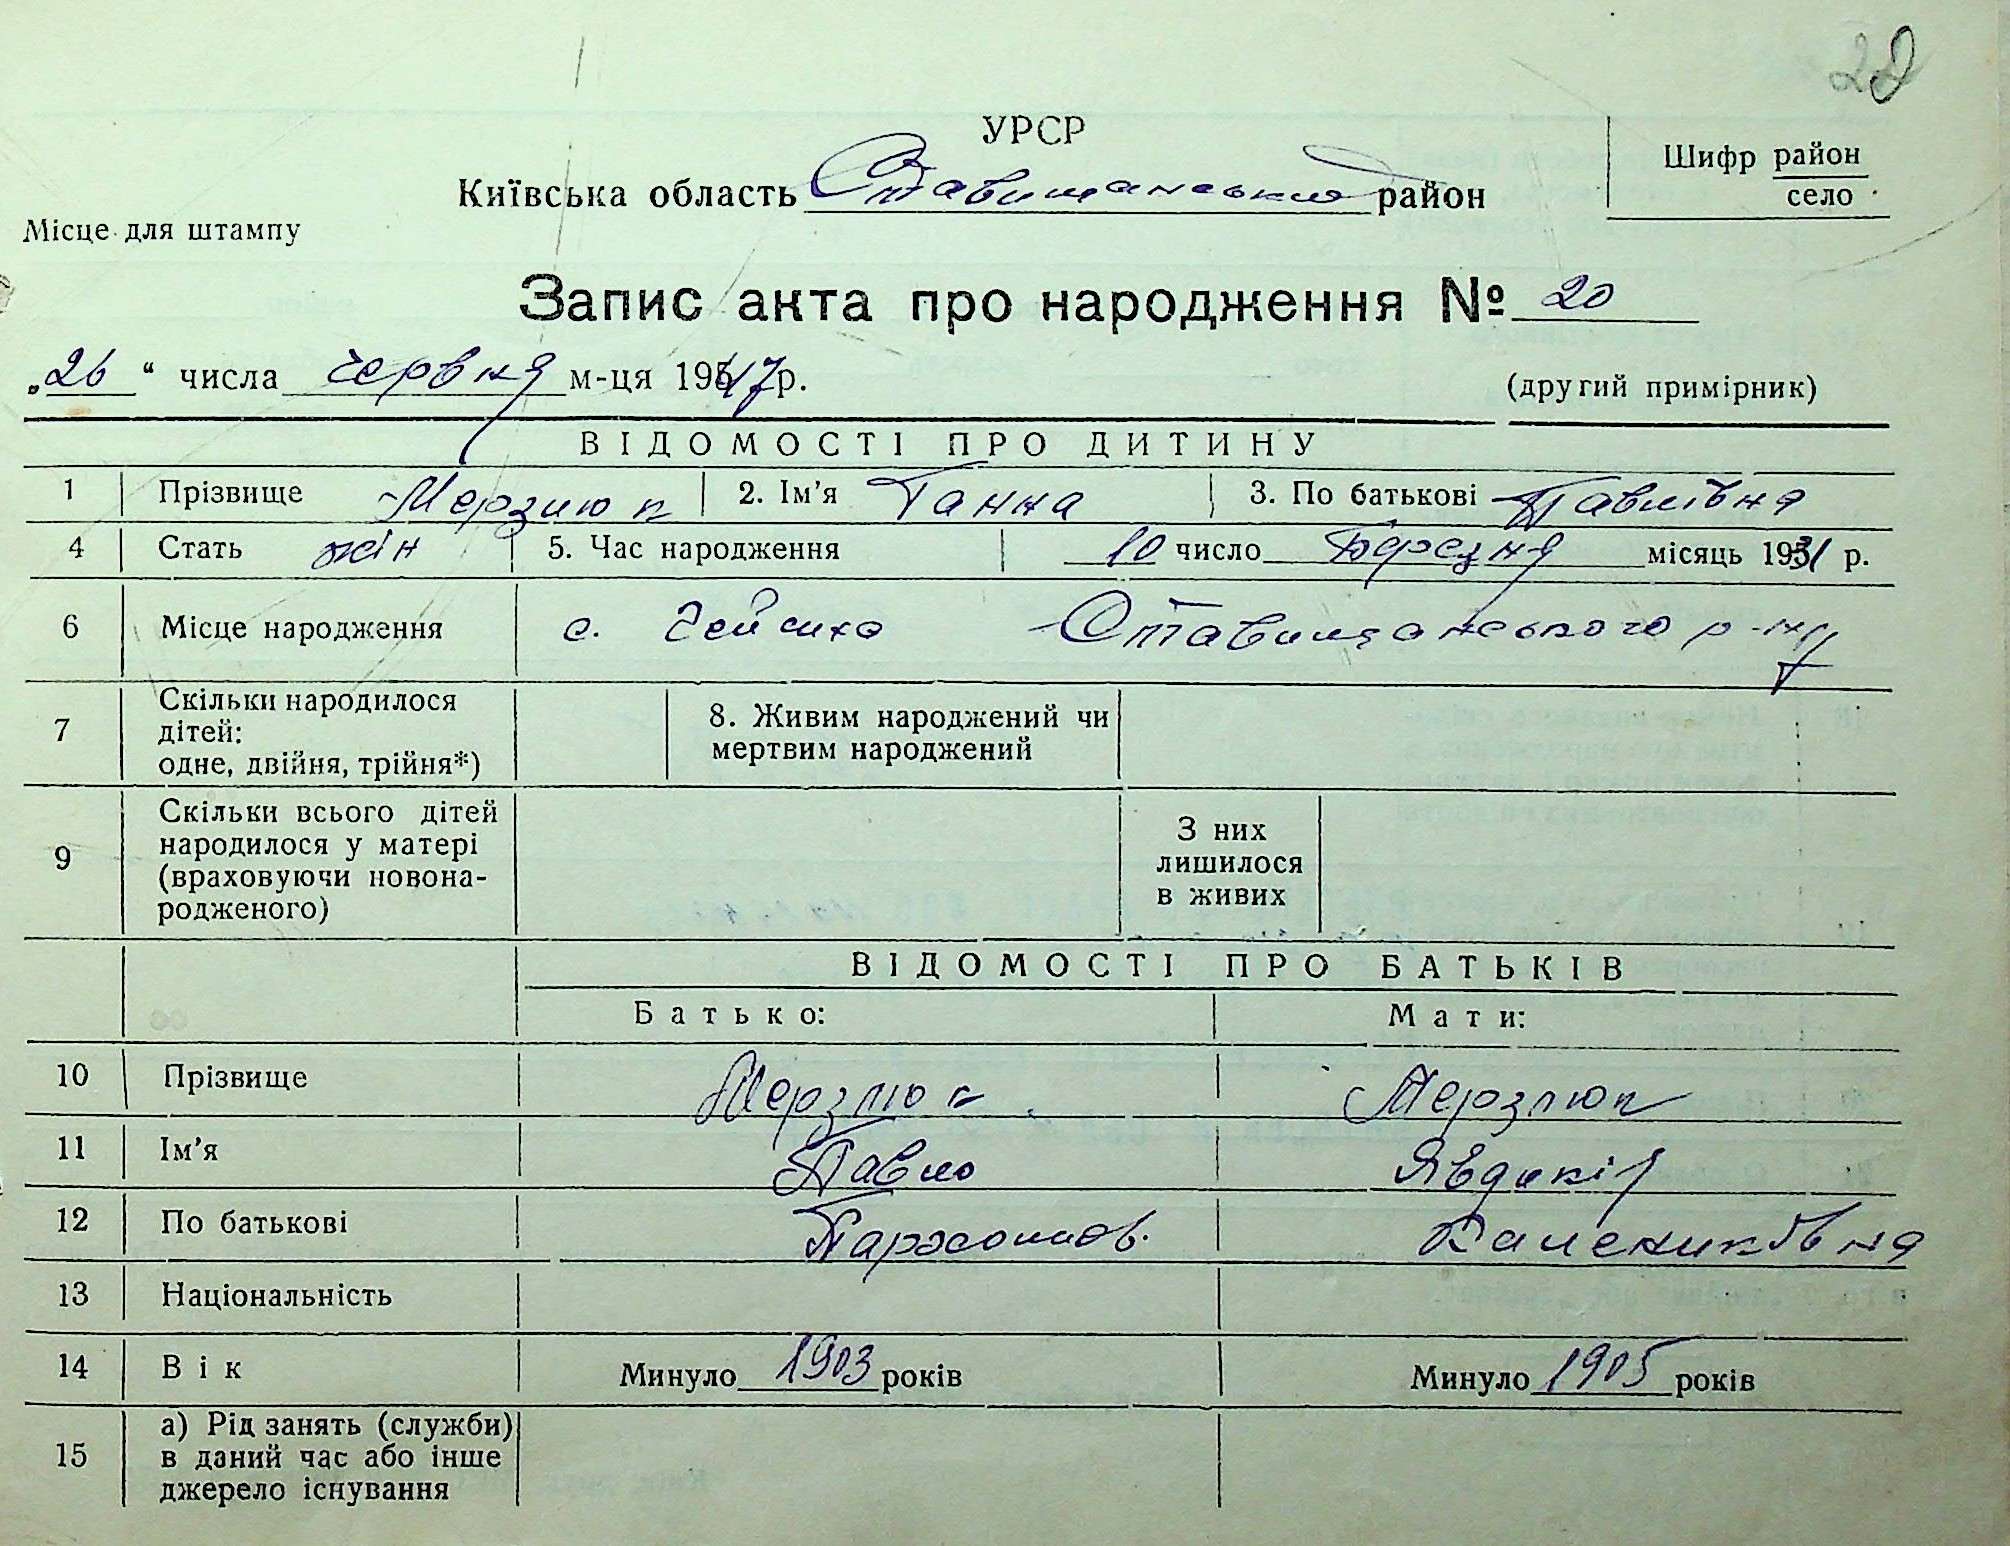 28
УРСР
Київська область Ставищанський район
Шифр район
село
Місце для штампу
Запис акта про народження № 20
„26“ числа червня м-ця 1947 р.
(другий примірник)
ВІДОМОСТІ ПРО ДИТИНУ
1 Прізвище Мерзлюк 2. Ім’я Ганна 3. По батькові Павлівна
4 Стать жін 5. Час народження 10 число березня місяць 1931 р.
6 Місце народження с. Гейсиха Ставищанського р-ну
7 Скільки народилося
дітей:
одне, двійня, трійня*)
8. Живим народжений чи
мертвим народжений
9 Скільки всього дітей
народилося у матері
(враховуючи новона-
родженого)
З них
лишилося
в живих
ВІДОМОСТІ ПРО БАТЬКІВ
Батько: Мати:
10 Прізвище Мерзлюк Мерзлюк
11 Ім’я Павло Явдокія
12 По батькові Пархомов. Калениківна
13 Національність
14 Вік Минуло 1903 років Минуло 1905 років
15 а) Рід занять (служби)
в даний час або інше
джерело існування